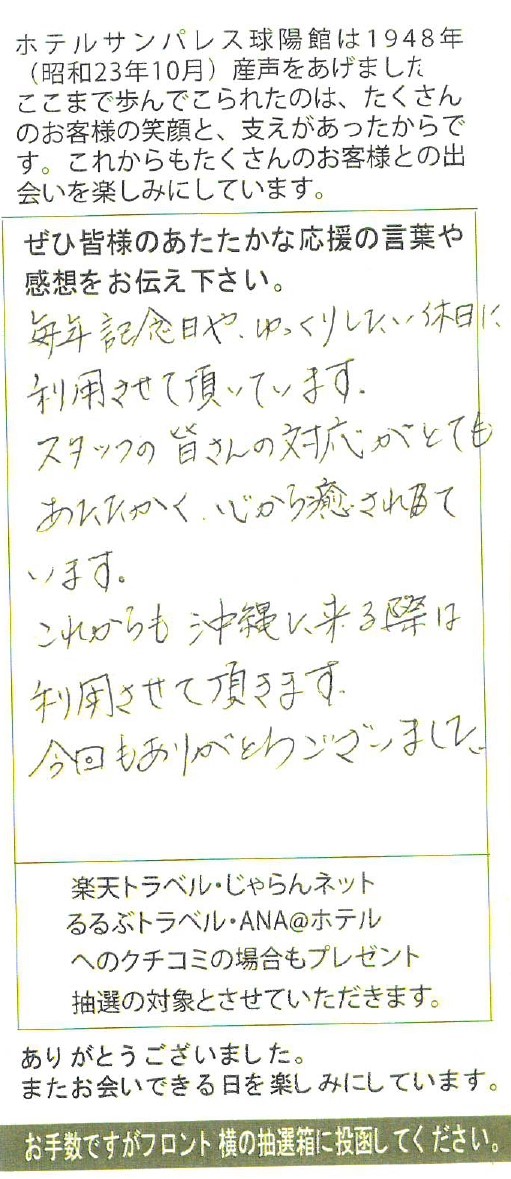 ホテルサンパレス球陽館は1948年
（昭和23年10月）産声をあげました
ここまで歩んでこられたのは、たくさん
のお客様の笑顔と、支えがあったからで
す。これからもたくさんのお客様との出
会いを楽しみにしています。
ぜひ皆様のあたたかな応援の言葉や
感想をお伝え下さい。
毎年記念日や、ゆっくりしたい休日に
利用させて頂いています。
スタッフの皆さんの対応がとても
あたたかく、心から癒されて
います。
これからも沖縄に来る際は
利用させて頂きます。
今回もありがとうございました。
楽天トラベル・じゃらんネット
るるぶトラベル・ANA@ホテル
へのクチコミの場合もプレゼント
抽選の対象とさせていただきます。
ありがとうございました。
またお会いできる日を楽しみにしています。
お手数ですがフロント横の抽選箱に投函してください。